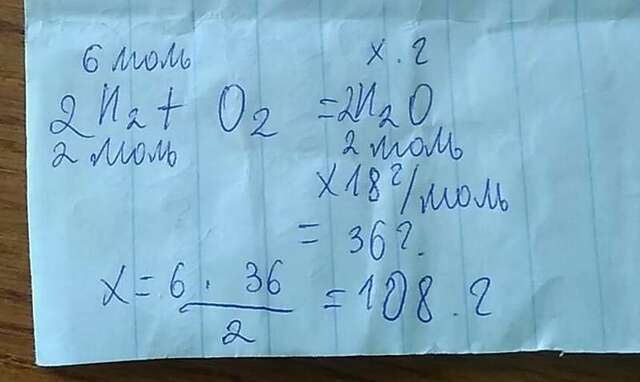 6 моль x. г
2H₂ + O₂ = 2H₂O
2 моль 2 моль
x18 г/моль
= 36 г.
x = 6 · 36 / 2 = 108. г